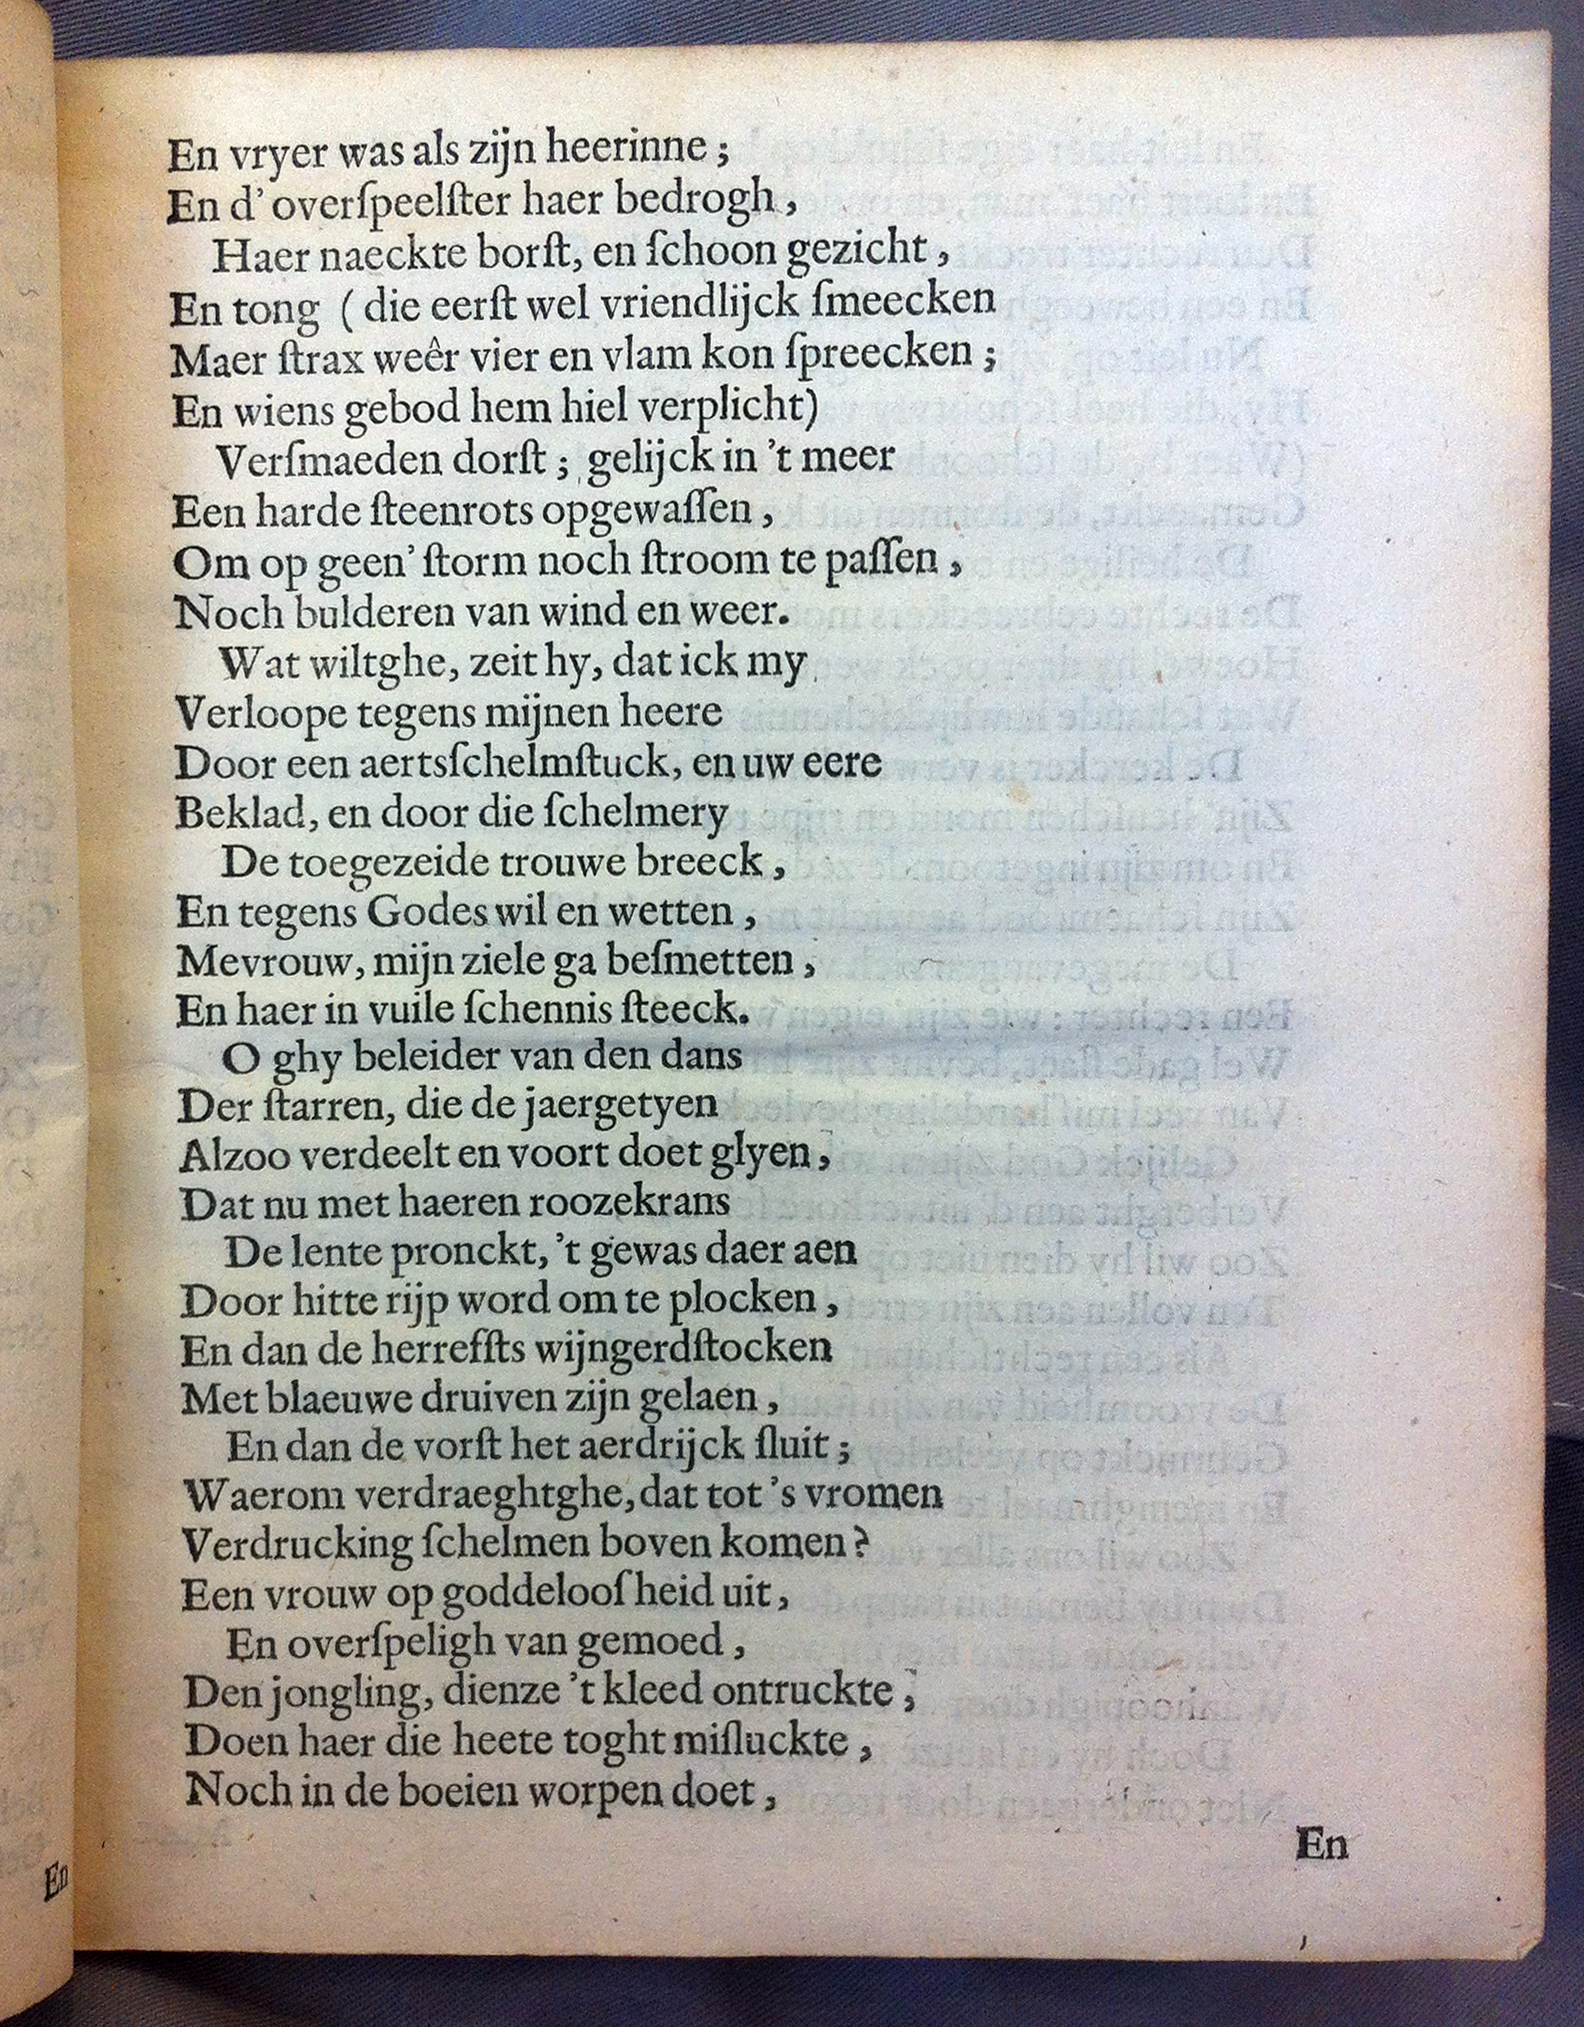 En vryer was als zijn heerinne;
En d' overſpeelſter haer bedrogh,
Haer naeckte borſt, en ſchoon gezicht,
En tong (die eerſt wel vriendlijck ſmeecken
Maer ſtrax weêr vier en vlam kon ſpreecken;
En wiens gebod hem hiel verplicht)
Verſmaeden dorſt; gelijck in 't meer
Een harde ſteenrots opgewaſſen,
Om op geen' ſtorm noch ſtroom te paſſen,
Noch bulderen van wind en weer.
Wat wiltghe, zeit hy, dat ick my
Verloope tegens mijnen heere
Door een aertsſchelmſtuck, en uw eere
Beklad, en door die ſchelmery
De toegezeide trouwe breeck,
En tegens Godes wil en wetten,
Mevrouw, mijn ziele ga beſmetten,
En haer in vuile ſchennis ſteeck.
O ghy beleider van den dans
Der ſtarren, die de jaergetyen
Alzoo verdeelt en voort doet glyen,
Dat nu met haeren roozekrans
De lente pronckt, 't gewas daer aen
Door hitte rijp word om te plocken,
En dan de herreffſts wijngerdſtocken
Met blaeuwe druiven zijn gelaen,
En dan de vorſt het aerdrijck ſluit;
Waerom verdraeghtghe, dat tot 's vromen
Verdrucking ſchelmen boven komen?
Een vrouw op goddelooſheid uit,
En overſpeligh van gemoed,
Den jongling, dienze 't kleed ontruckte,
Doen haer die heete toght miſluckte,
Noch in de boeien worpen doet,
En
En